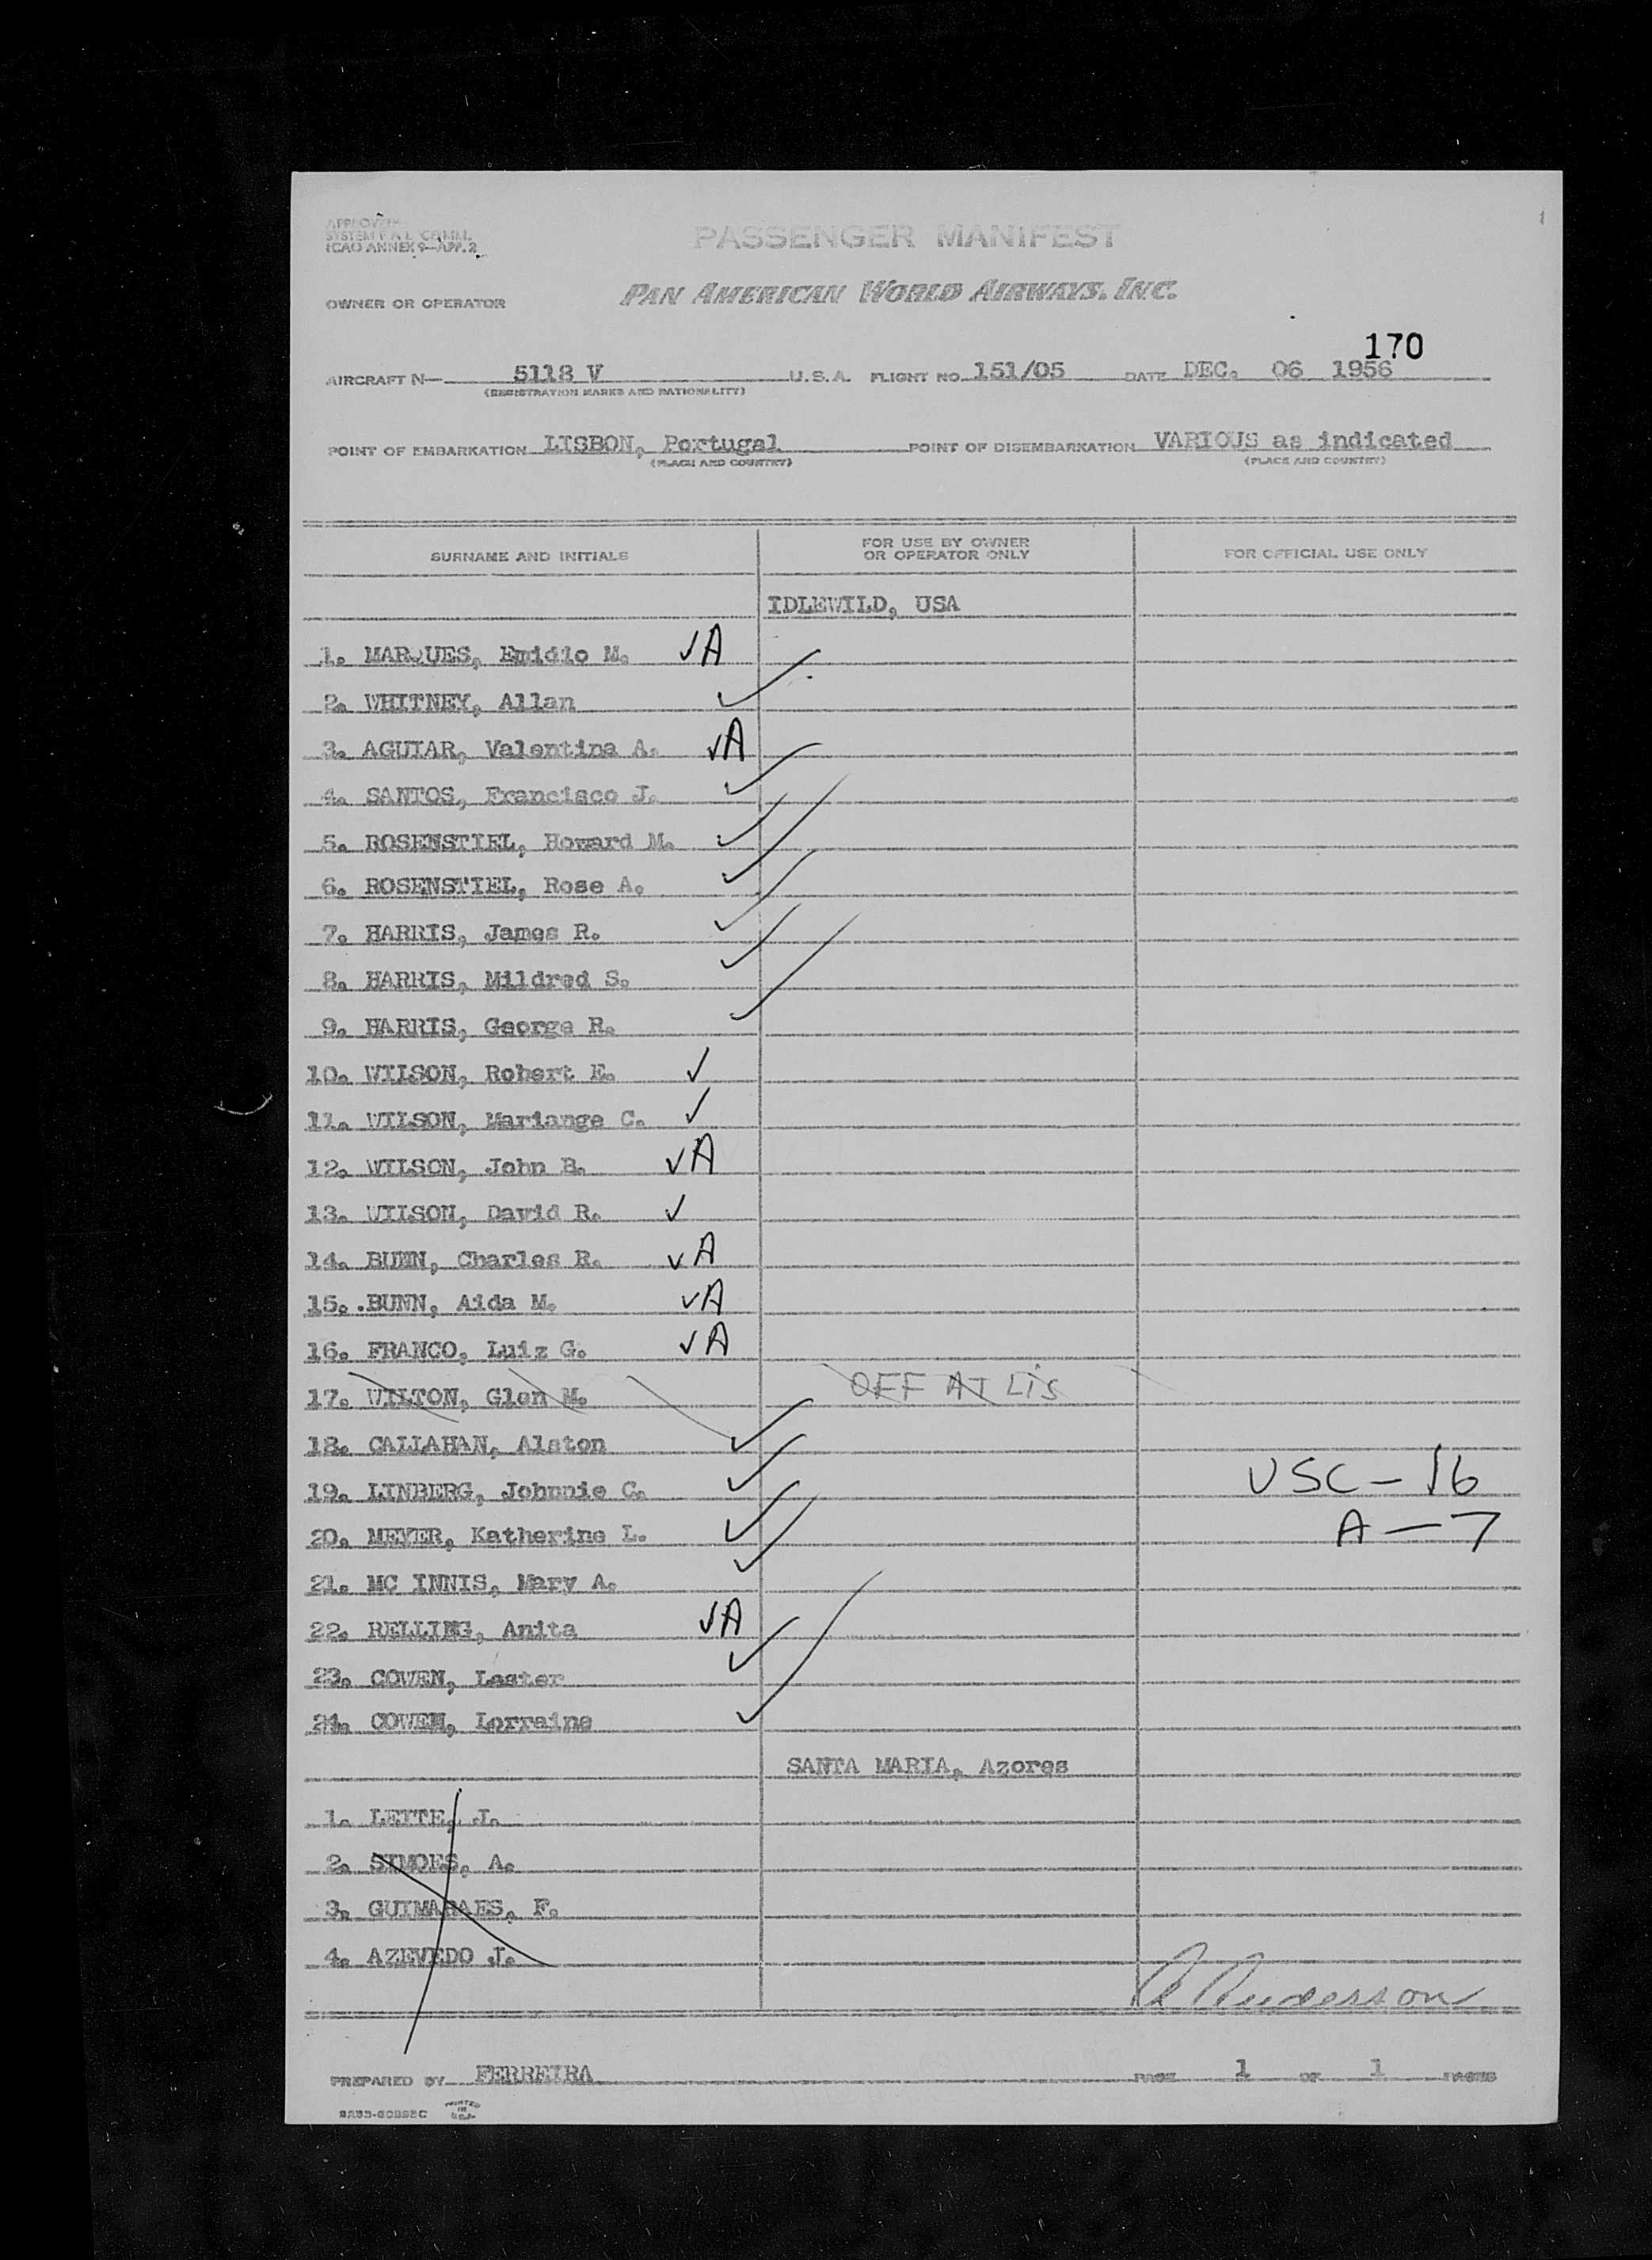 APPROVED
SYSTEM F.A.L. COMM.
ICAO ANNEX 9—APP. 2
PASSENGER MANIFEST
OWNER OR OPERATOR PAN AMERICAN WORLD AIRWAYS, INC.
170
AIRCRAFT N— 5118 V U.S.A. FLIGHT NO. 151/05 DATE DEC. 06 1956
(REGISTRATION MARKS AND NATIONALITY)
POINT OF EMBARKATION LISBON, Portugal POINT OF DISEMBARKATION VARIOUS as indicated
(PLACE AND COUNTRY) (PLACE AND COUNTRY)
SURNAME AND INITIALS FOR USE BY OWNER OR OPERATOR ONLY FOR OFFICIAL USE ONLY
IDLEWILD, USA
1. MARQUES, Emidio M. ✓A
2. WHITNEY, Allan ✓
3. AGUIAR, Valentina A. ✓A
4. SANTOS, Francisco J. ✓
5. ROSENSTIEL, Howard M. ✓
6. ROSENSTIEL, Rose A. ✓
7. HARRIS, James R. ✓
8. HARRIS, Mildred S. ✓
9. HARRIS, George R. ✓
10. WILSON, Robert E. ✓
11. WILSON, Mariange C. ✓
12. WILSON, John B. ✓A
13. WILSON, David R. ✓
14. BUNN, Charles R. ✓A
15. BUNN, Aida M. ✓A
16. FRANCO, Luiz G. ✓A
17. WILTON, Glen M. OFF AT LIS
18. CALLAHAN, Alston ✓
19. LINBERG, Johnnie C. ✓ USC - 16
20. MEYER, Katherine L. ✓ A - 7
21. MC INNIS, Mary A. ✓
22. RELLING, Anita ✓A
23. COWEN, Lester ✓
24. COWEN, Lorraine ✓
SANTA MARIA, Azores
1. LEITE, J.
2. SIMOES, A.
3. GUIMARAES, F.
4. AZEVEDO J.
Anderson
PREPARED BY FERREIRA PAGE 1 OF 1 PAGES
PRINTED IN U.S.A.